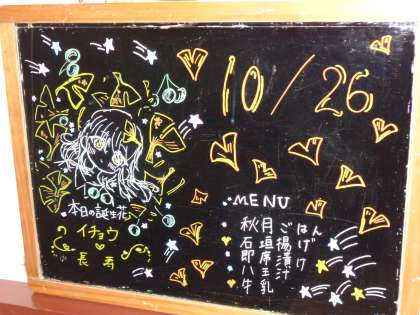 10/26
本日の誕生花
イチョウ
長寿
MENU
秋月ごはん
石垣揚げ
即席漬け
八王汁
牛乳